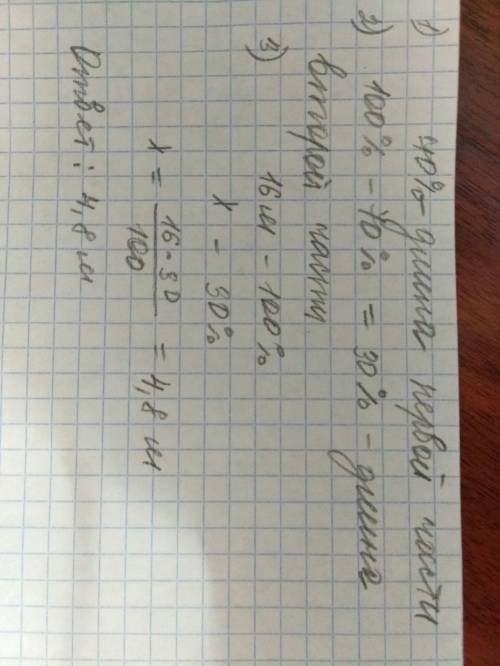 1) 70% - длина первой части
2) 100% - 70% = 30% - длина
второй части
3) 16 м - 100%
х - 30%
х = 16 · 30 / 100 = 4,8 м
Ответ: 4,8 м